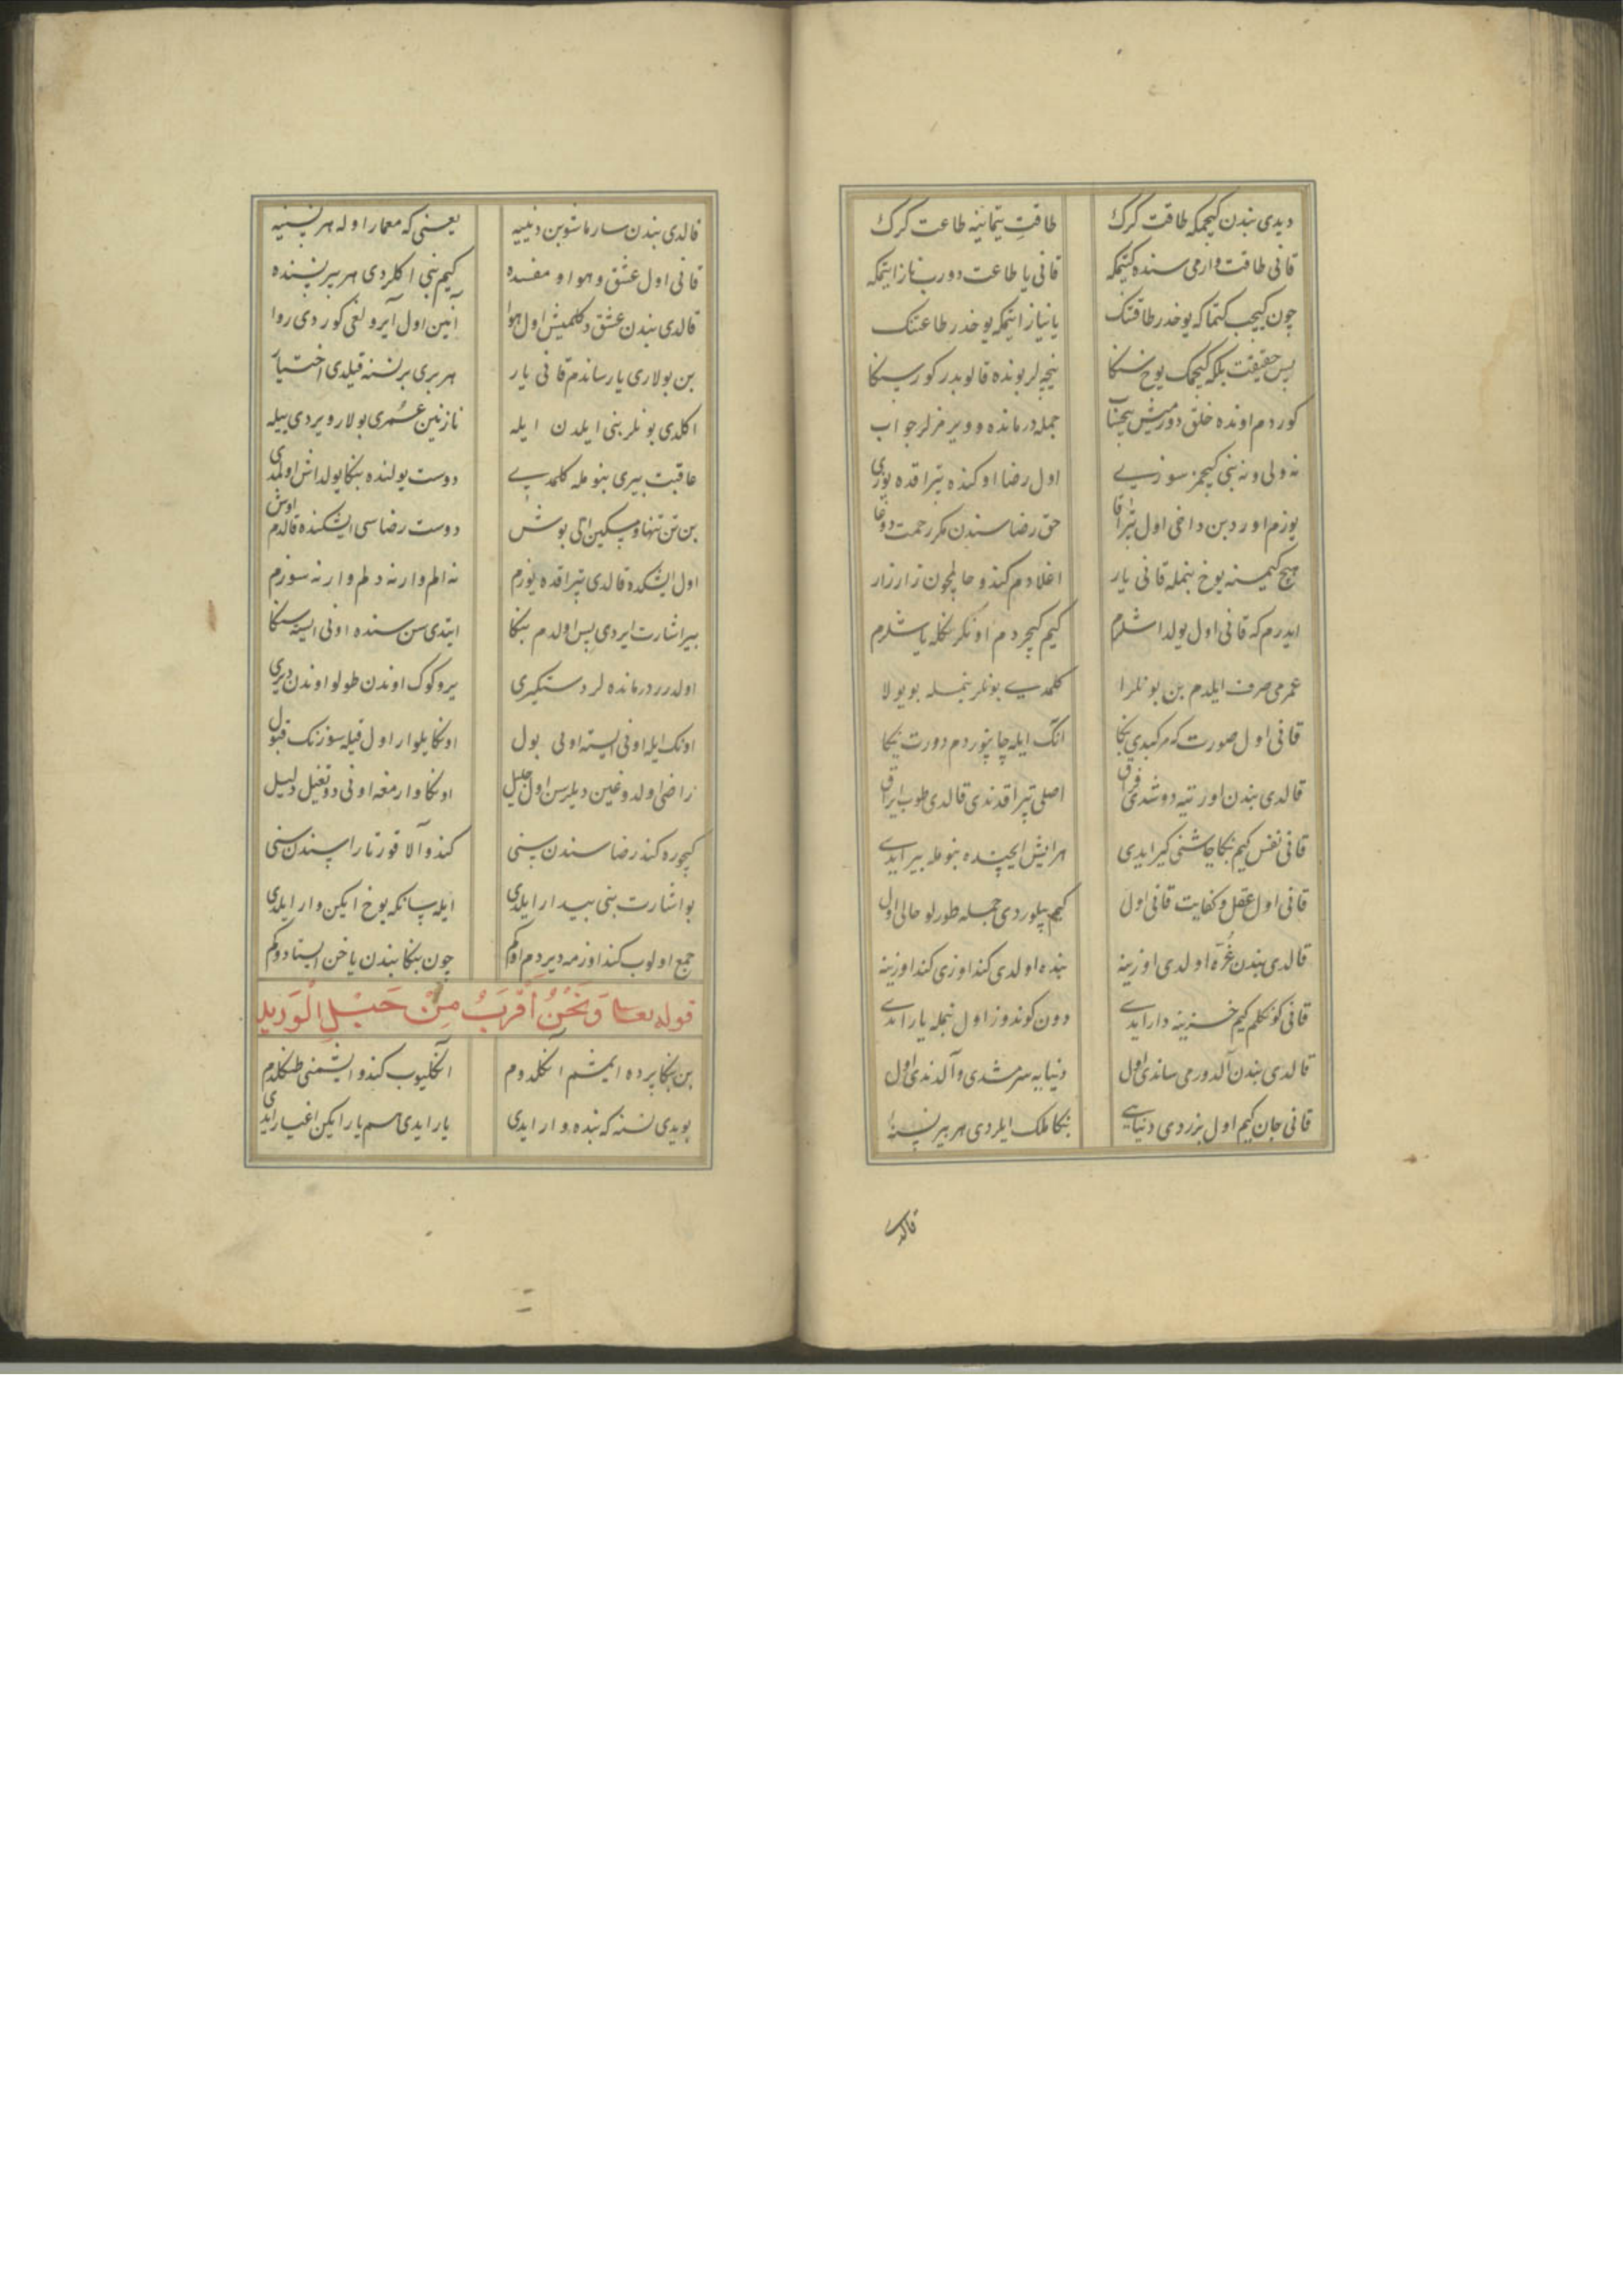 دیدی بندن کیچمکه طاقت کرک طاقت یتماینه طاعت کرک
قانی طاقت وارمی سنده کیتمکه قانی یا طاعت دورب ناز ایتمکه
چون کیجب کتماکه یوخدر طاقتک یا نیاز ایتمکه یوخدر طاعتک
پس حقیقت بلکه کیچمک یوخ سنکا نیچه لر بونده قالوبدر کور سنکا
کوردم اونده خلق دورمیش بیحساب جمله درمانده و ویرمزلر جواب
نه ولی و نه بنی کیچمز سوزی اول رضا اوکنده تپراقده یوزی
یوزم اوردبن داخی اول تپراقا حق رضاسندن مکر رحمت دوغا
هیچ کیمسنه یوخ بنمله قانی یار اغلادم کندو حالمچون زار زار
ایدرم که قانی اول یولداشلرم کیم کیچردم اونکلر نکله یاشلرم
عمرمی صرف ایلدم بن بونلرا کلمدی بونلر بنمله بو یولا
قانی اول صورت که مرکبدی بنکا انک ایله چاپنوردم دورت یکا
قالدی بندن اورتیه دوشدی فراق اصلی تپراقدندی قالدی طوب ایراق
قانی نفس کیم بنکا چاشنی کیر ایدی هر ایش ایچنده بنومله بیر ایدی
قانی اول عقل و کفایت قانی اول کیم بیلوردی جمله طورلو حالی اول
قالدی بندن غره اولدی اوزینه بنده اولدی کنداوزی کنداوزینه
قانی کونکلم کیم خزینه دار ایدی دون کوندوز اول بنمله یار ایدی
قالدی بندن آلدورمی ساندی اول دنیایه سرمشدی و آلدندی اول
قانی جان کیم اول بزردی دنیایی بنکا ملک ایلردی هر بیر نسنه
قالدی
قالدی بندن سارماشوبن دنییه یعنی که معمار اوله هر نسنیه
قانی اول عشق و هوا و مفسده کیم بنی اکلردی هر بیر نسنده
قالدی بندن عشق دکلمیش اول هوا آنین اول آیرولغی کوردی روا
بن بولاری یار ساندم قانی یار هر بری بر نسنه قیلدی اختیار
اکلدی بونلر بنی ایلدن ایله نازنین عمری بولار ویردی ییله
عاقبت بیری بنومله کلمدی دوست یولنده بنکا یولداش اولمدی
بن تن تنها و مسکین الی بوش دوست رضاسی ایشکنده قالدم اوش
اول ایشکده قالدی تپراقده یوزم نه الم وار نه دلم وار نه سوزم
بیر اشارت ایردی پس اولدم بنکا ایتدی سن سنده اونی ایسته سنکا
اولدرر درمانده لر دستکیری یر و کوک اوندن طولو اوندن دیری
اونک ایله اونی ایسته اونی بول اونکا یلوار اول قیله سوزنک قبول
راضی اولدوغین دیلرسن اول جلیل اونکا وارمغه اونی دوتغیل دلیل
کیچوره کندر رضاسندن سنی کندو آلا قورتارا سندن سنی
بو اشارت بنی بیدار ایلدی ایله سانکه یوخ ایکن وار ایلدی
جمع اولوب کنداوزمه دیردم اوکم چون بنکا بندن یاخن ایستادوکم
قوله تعالی وَنَحْنُ اَقْرَبُ مِنْ حَبْلِ الْوَرِیدِ
بن بنکا پرده ایمشم آنکلدوم آنکلیوب کندو ایشمنی طنکلدم
بویدی نسنه که بنده وار ایدی یار ایدی هم یار ایکن اغیار ایدی